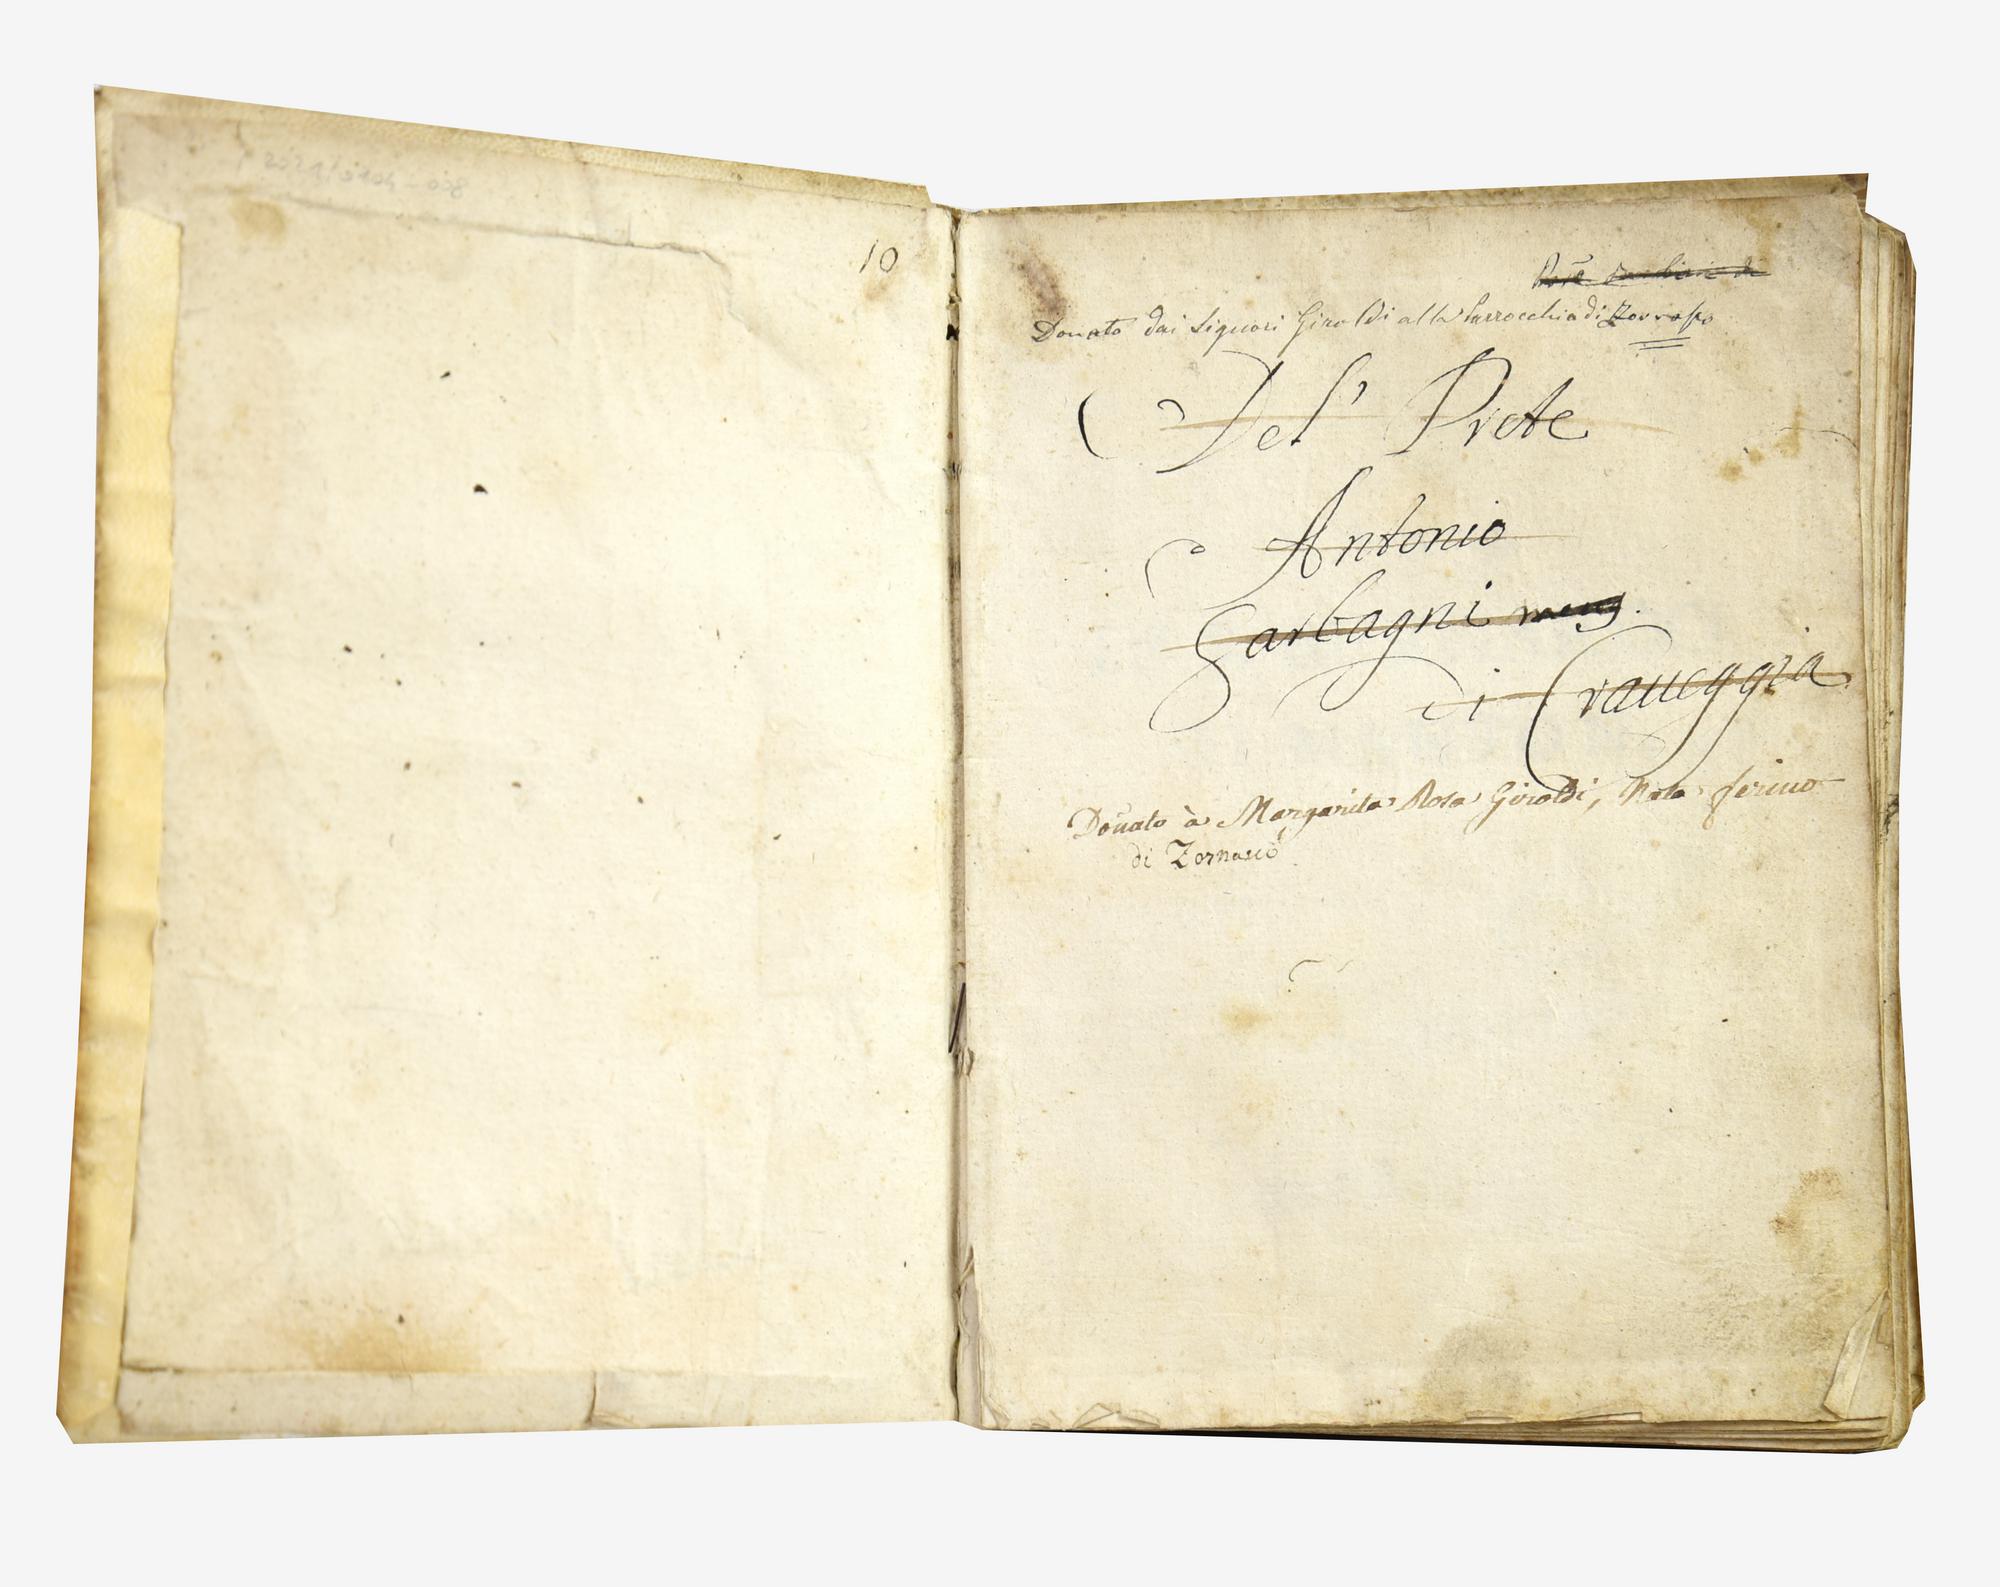 10
Donato dai Signori Giraldi alla Parrocchia di
Del' Prete
Antonio
Garbagni
di Craueggia
Donato à Margarita Rosa Giraldi, Nata ferino
di Zornasco